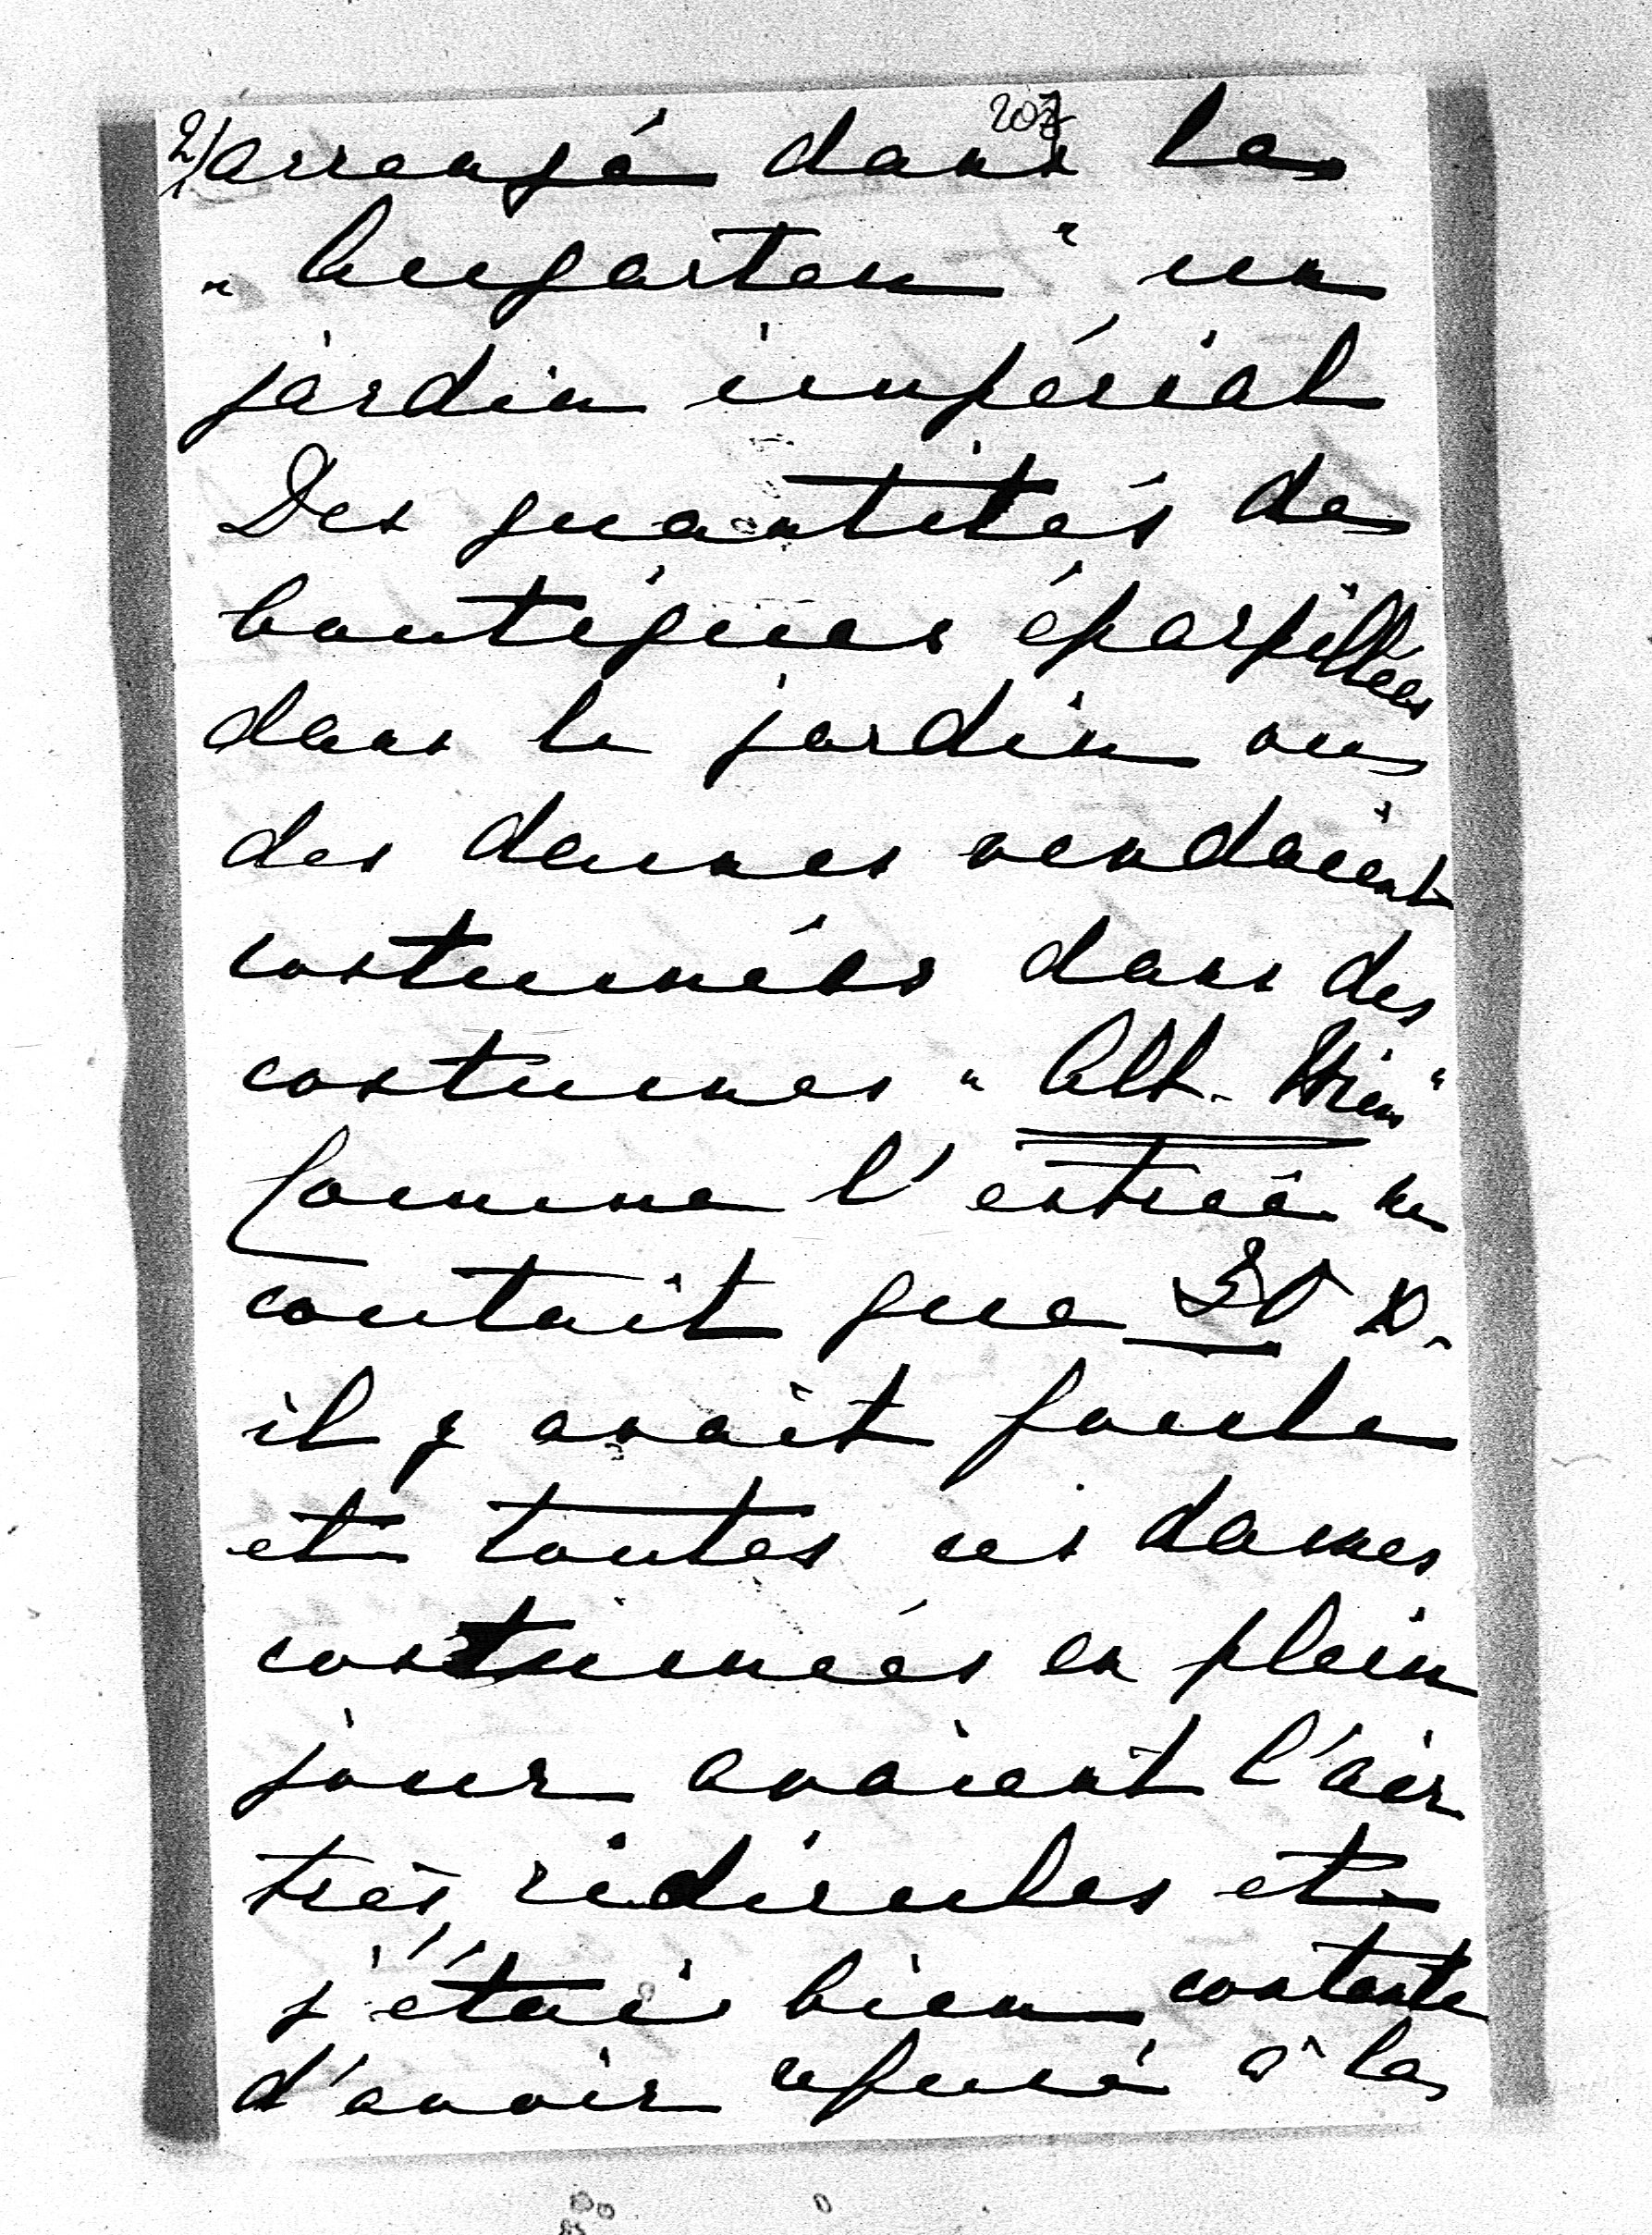 207
2/ arrangé dans le
„Augarten“ un
jardin impérial
Des quantités de
boutiques éparpillées
dans le jardin ou
des dames vendaient
costumées dans des
costumes „Alt-Wien“
Comme l'entrée ne
coutait que 30 K.
il y avait foule
et toutes ces dames
costumées en plein
jour avaient l'air
très ridicules et
j'étais bien contente
d'avoir refusé à la